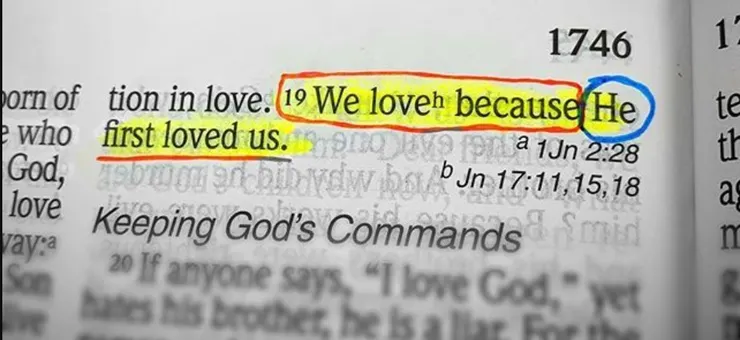 1746
orn of
e who
God,
love
way:ᵃ
Son
tion in love. ¹⁹ We loveʰ because He
first loved us.
ᵃ 1Jn 2:28
ᵇ Jn 17:11,15,18
Keeping God's Commands
²⁰ If anyone says, "I love God," yet
hates his brother, he is a liar. For the
17
te
th